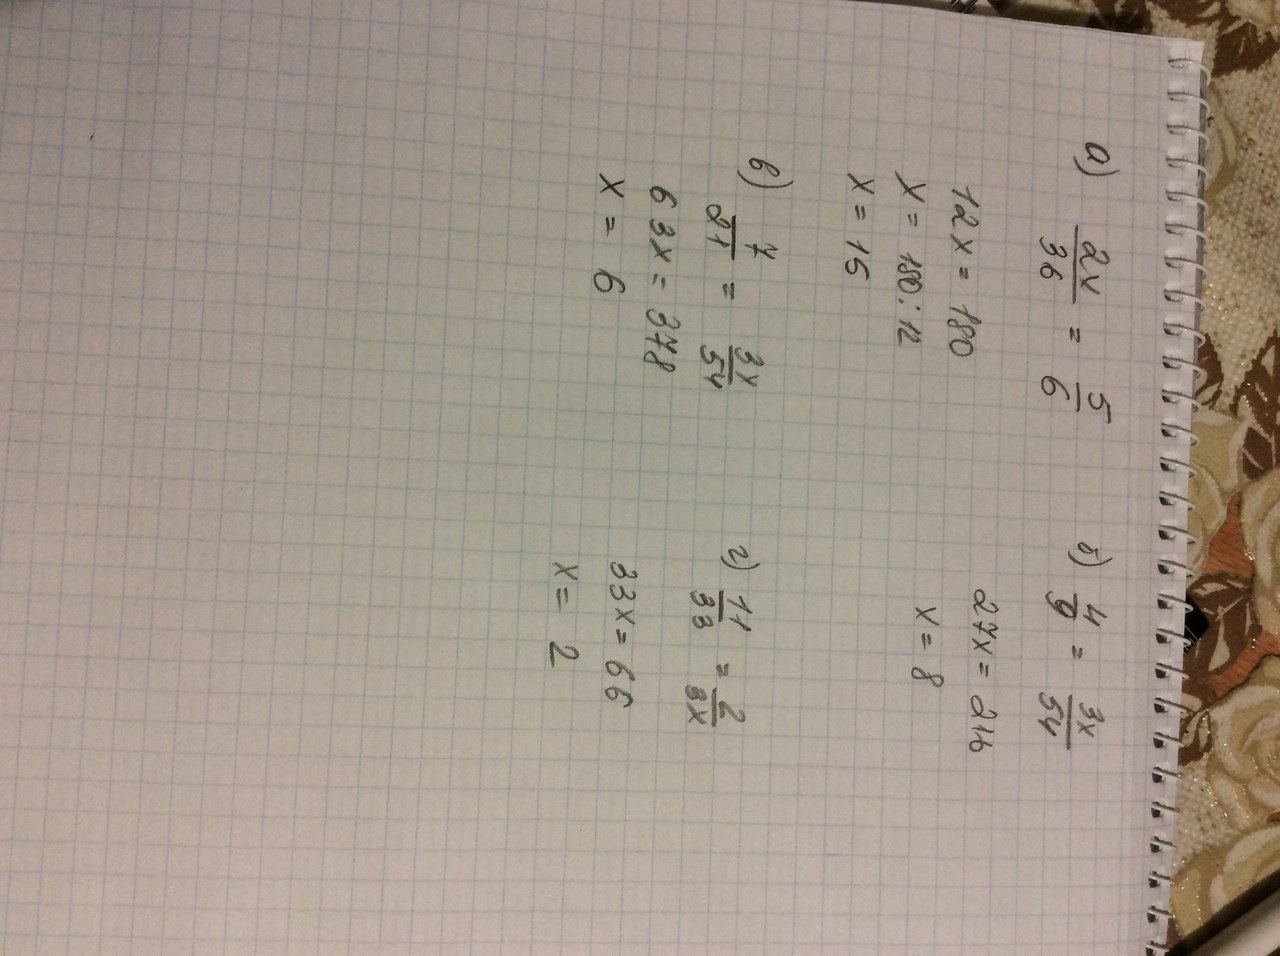 а) 2x/36 = 5/6
12x = 180
x = 180 : 12
x = 15
б) 4/9 = 3x/54
27x = 216
x = 8
в) 7/21 = 3x/54
63x = 378
x = 6
г) 11/33 = 2/3x
33x = 66
x = 2